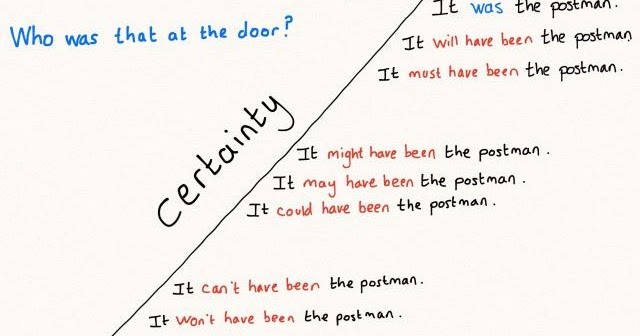 Who was that at the door?
It was the postman.
It will have been the postman
It must have been the postman.
certainty
It might have been the postman.
It may have been the postman.
It could have been the postman.
It can't have been the postman.
It won't have been the postman.